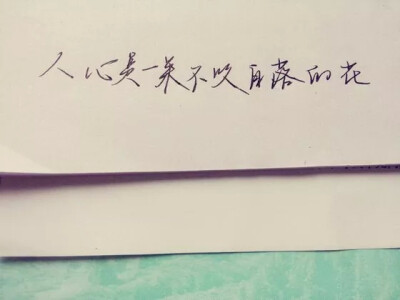 人心是一朵不吹自落的花